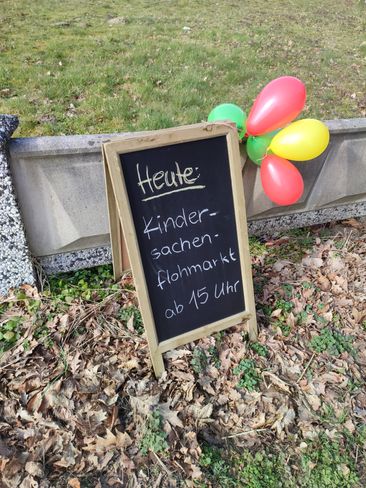 Heute:
Kinder-
sachen-
flohmarkt
ab 15 Uhr